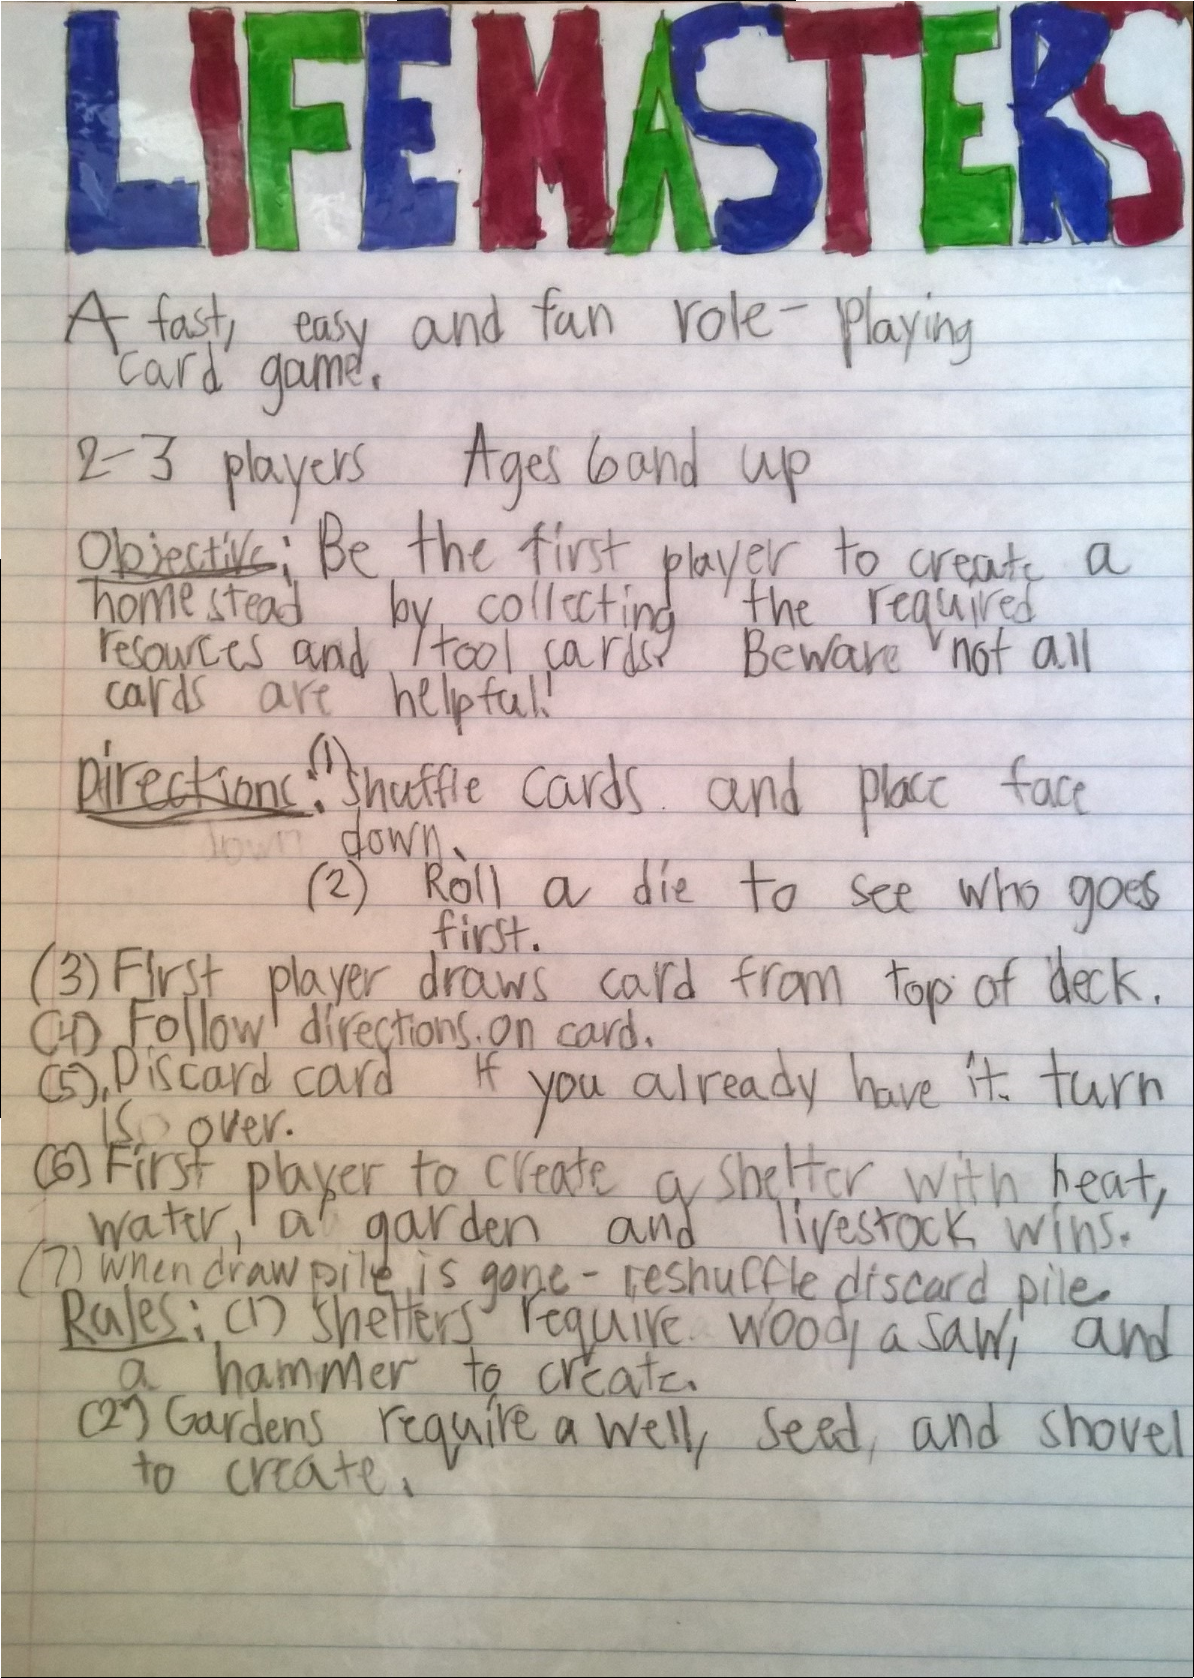 LIFEMASTERS
A fast, easy and fun role-playing
card game.
2-3 players Ages 6 and up
Objective: Be the first player to create a
homestead by collecting the required
resources and tool cards. Beware not all
cards are helpful!
Directions: (1) Shuffle cards and place face
down.
(2) Roll a die to see who goes
first.
(3) First player draws card from top of deck.
(4) Follow directions on card.
(5) Discard card if you already have it. turn
is over.
(6) First player to create a shelter with heat,
water, a garden and livestock wins.
(7) When draw pile is gone - reshuffle discard pile.
Rules: (1) Shelters require wood, a saw, and
a hammer to create.
(2) Gardens require a well, seed, and shovel
to create.